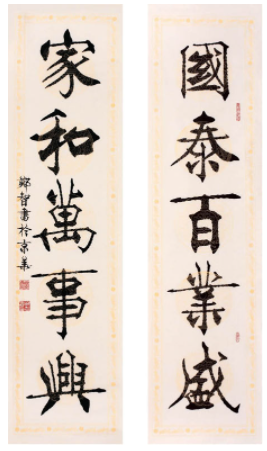 國泰百業盛
家和萬事興
鄭智書於京華